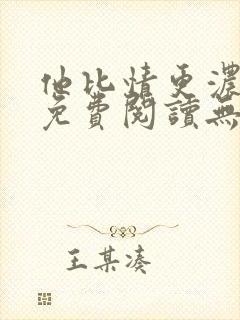 他比情更濃
免費閱讀無
王某湊